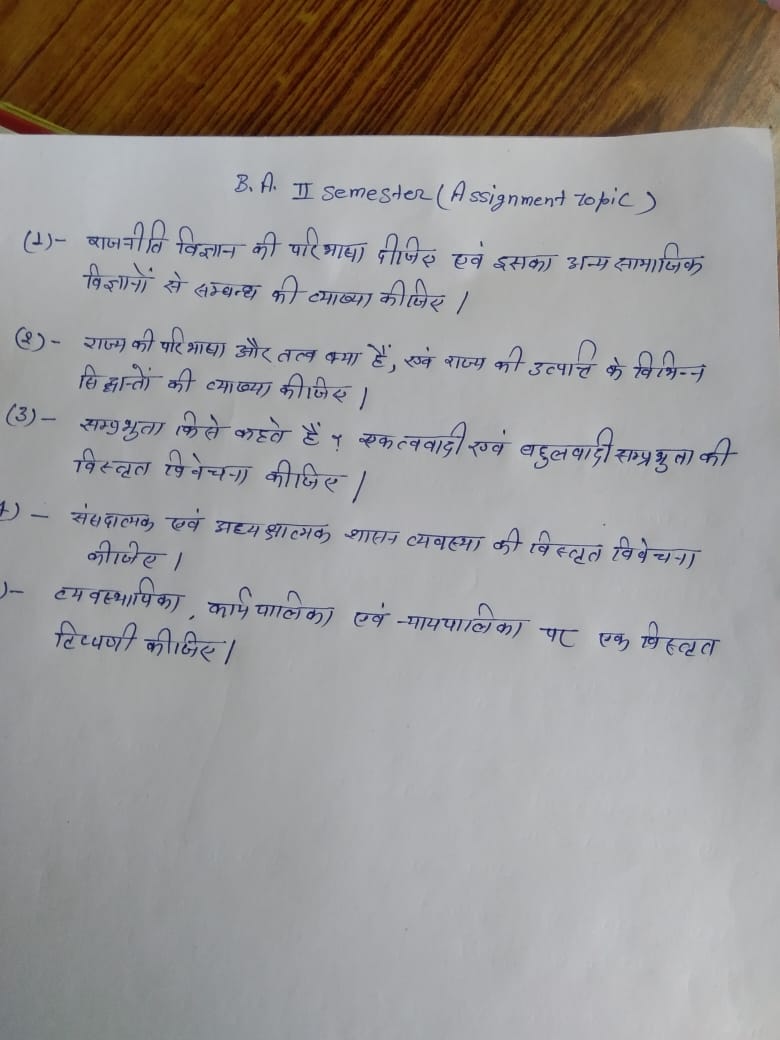 B.A. II Semester (Assignment topic)
(1)- राजनीति विज्ञान की परिभाषा दीजिए एवं इसका अन्य सामाजिक
विज्ञानों से सम्बन्ध की व्याख्या कीजिए।
(2)- राज्य की परिभाषा और तत्व क्या हैं, एवं राज्य की उत्पत्ति के विभिन्न
सिद्धान्तों की व्याख्या कीजिए।
(3)- सम्प्रभुता किसे कहते हैं? एकत्ववादी एवं बहुलवादी सम्प्रभुता की
विस्तृत विवेचना कीजिए।
) - संसदात्मक एवं अध्यक्षात्मक शासन व्यवस्था की विस्तृत विवेचना
कीजिए।
)- व्यवस्थापिका, कार्यपालिका एवं न्यायपालिका पर एक विस्तृत
टिप्पणी कीजिए।